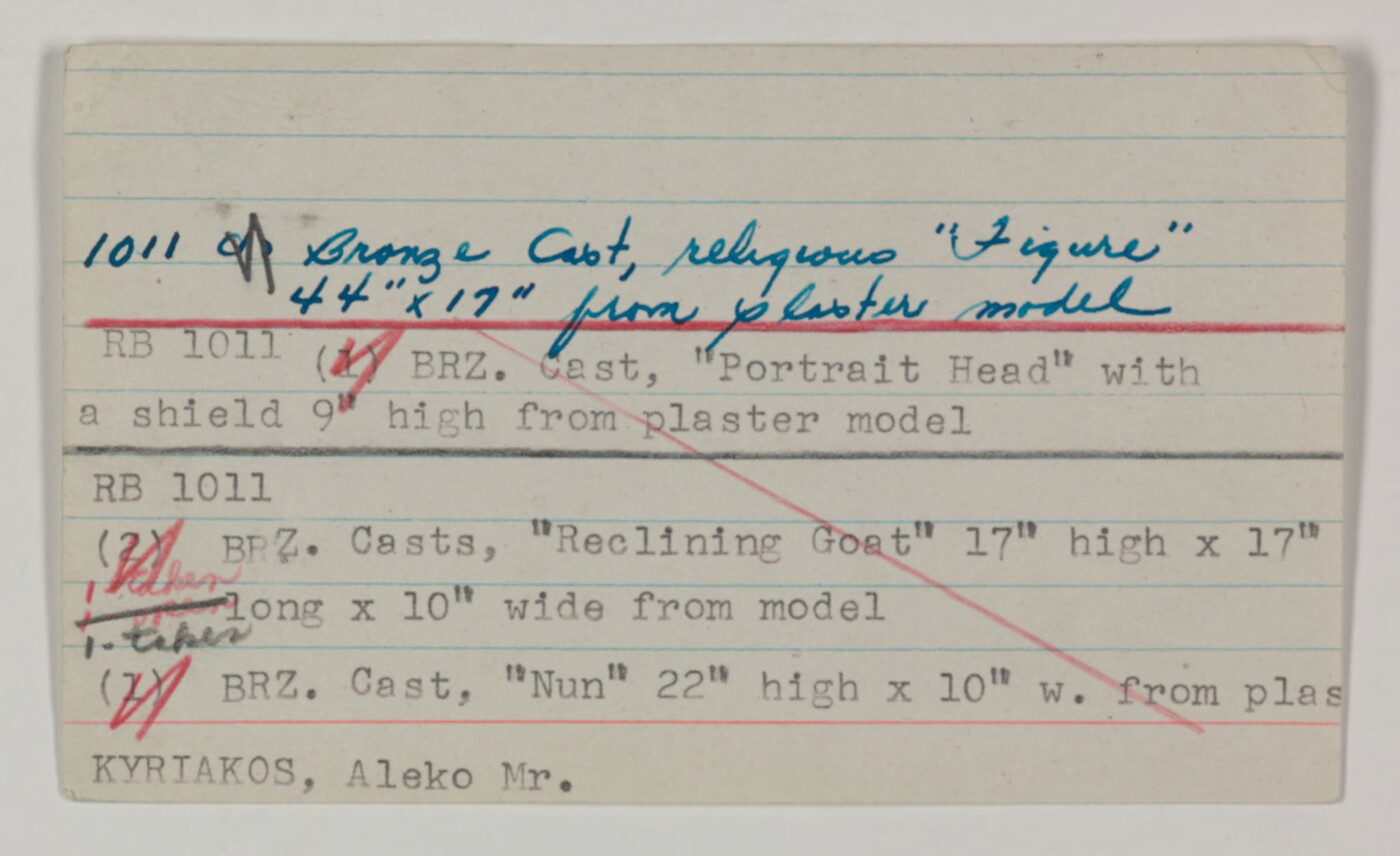 1011 (1) Bronze Cast, religious "Figure"
44" x 17" from plaster model
RB 1011 (1) BRZ. Cast, "Portrait Head" with
a shield 9" high from plaster model
RB 1011
(2) BRZ. Casts, "Reclining Goat" 17" high x 17"
1 taken
long x 10" wide from model
1- taken
(1) BRZ. Cast, "Nun" 22" high x 10" w. from plas
KYRIAKOS, Aleko Mr.